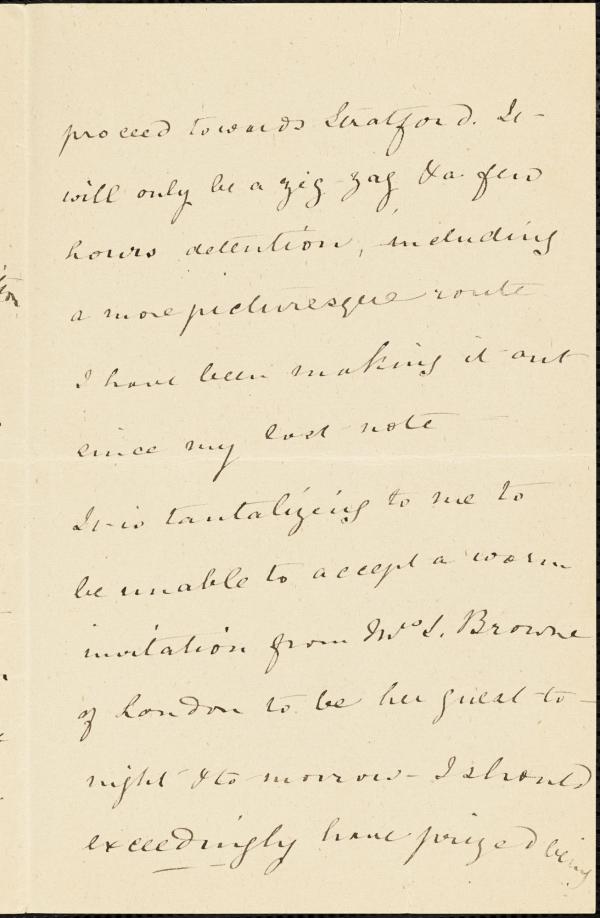 proceed towards Stratford. It
will only be a zig-zag & a few
hours detention, including
a more picturesque route
I have been making it out
since my last note
It is tantalizing to me to
be unable to accept a warm
invitation from Mrs S. Browne
of London to be her guest to-
night & to-morrow - I should
exceedingly have prized being